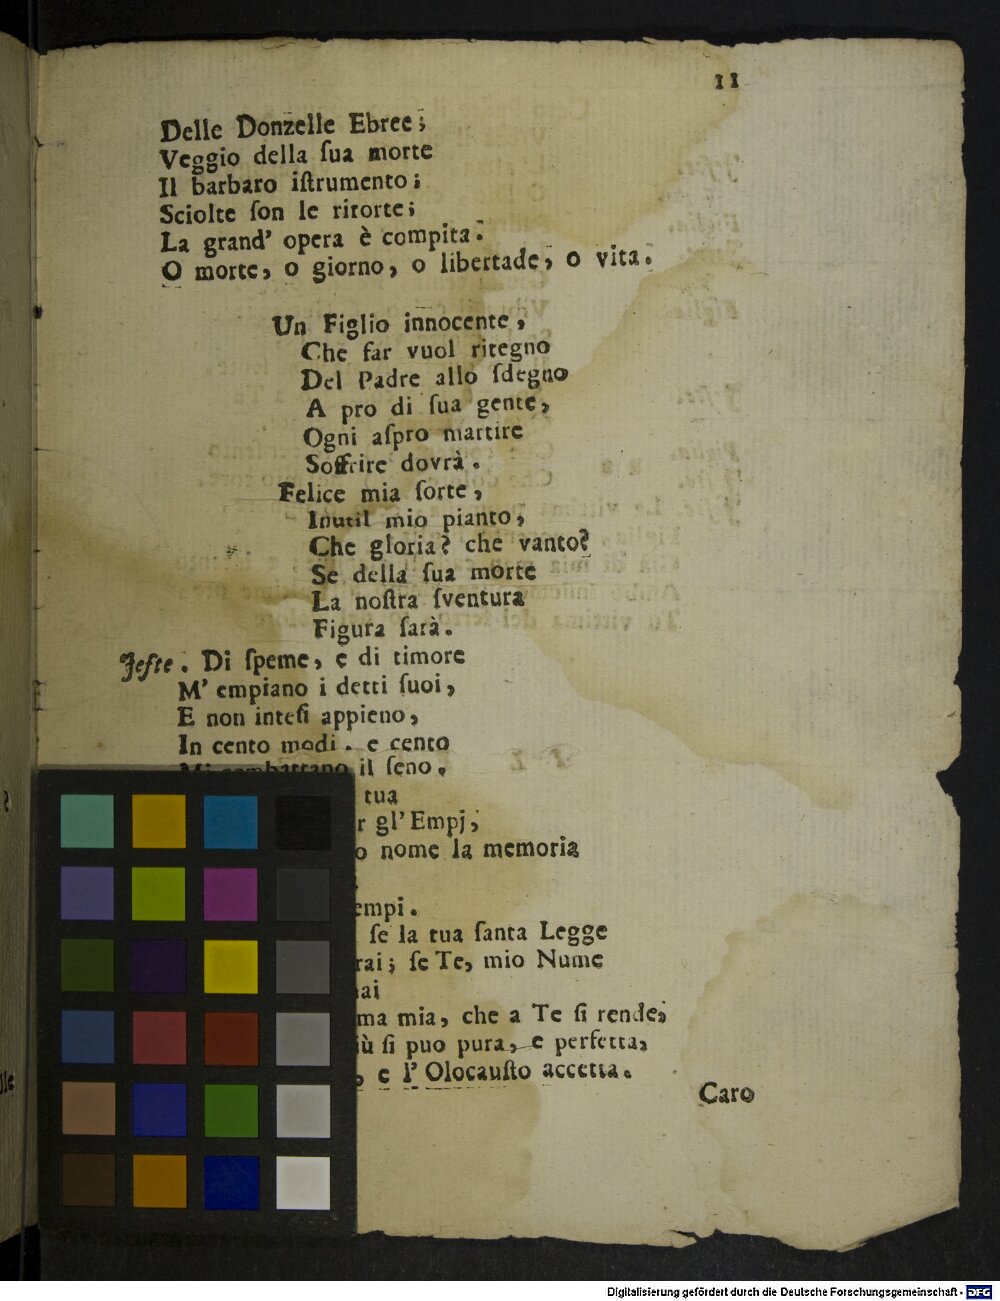 11
Delle Donzelle Ebree;
Veggio della ſua morte
Il barbaro iſtrumento;
Sciolte ſon le ritorte;
La grand' opera è compita.
O morte, o giorno, o libertade, o vita.
Un Figlio innocente,
Che far vuol ritegno
Del Padre allo ſdegno
A pro di ſua gente,
Ogni aſpro martire
Soffrire dovrà.
Felice mia ſorte,
Inutil mio pianto,
Che gloria? che vanto?
Se della ſua morte
La noſtra ſventura
Figura ſarà.
Jefte. Di ſpeme, e di timore
M' empiano i detti ſuoi,
E non inteſi appieno,
In cento modi. e cento
Mi combattano il ſeno.
tua
r gl' Empj,
o nome la memoria
empi.
ſe la tua ſanta Legge
rai; ſe Te, mio Nume
ai
ma mia, che a Te ſi rende;
iù ſi puo pura, e perfetta,
, e l' Olocauſto accetta.
Caro
lle
Digitalisierung gefördert durch die Deutsche Forschungsgemeinschaft - DFG